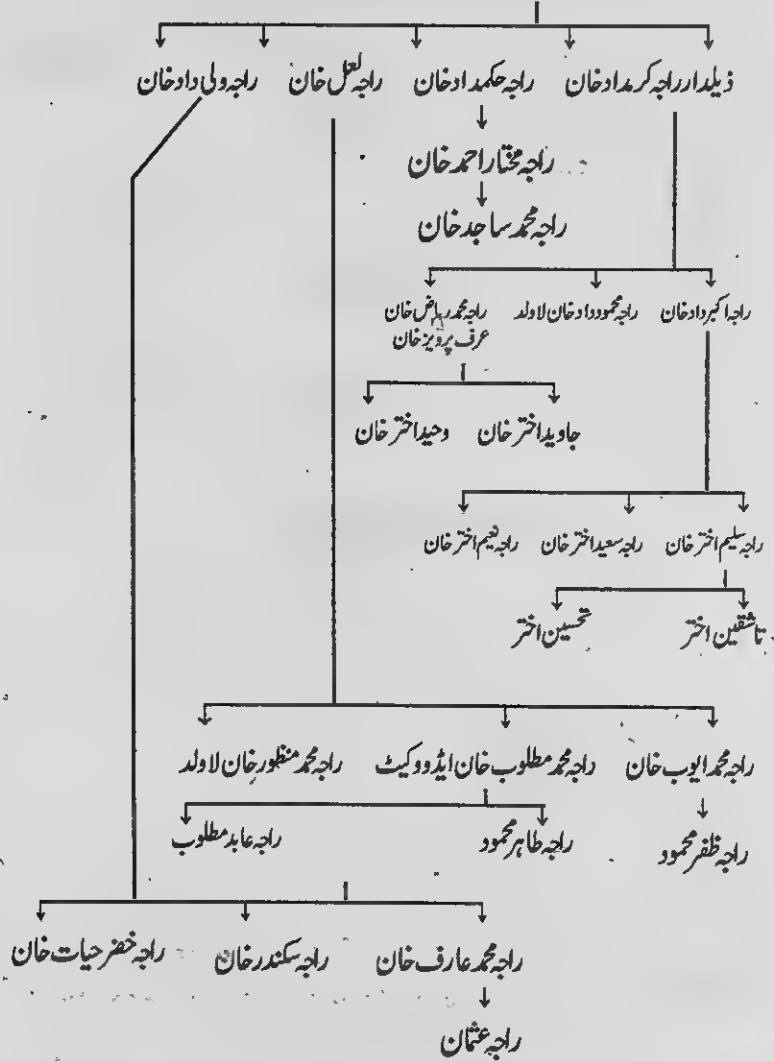 ذیلدار راجہ کرمداد خان راجہ حکمداد خان راجہ لعل خان راجہ ولی داد خان
راجہ مختار احمد خان
راجہ محمد ساجد خان
راجہ اکبر داد خان راجہ محمود داد خان لاولد راجہ محمد ریاض خان
عرف پرویز خان
جاوید اختر خان وحید اختر خان
راجہ سلیم اختر خان راجہ سعید اختر خان راجہ نعیم اختر خان
تاشقین اختر تحسین اختر
راجہ محمد ایوب خان راجہ محمد مطلوب خان ایڈووکیٹ راجہ محمد منظور خان لاولد
راجہ ظفر محمود راجہ طاہر محمود راجہ عابد مطلوب
راجہ محمد عارف خان راجہ سکندر خان راجہ خضر حیات خان
راجہ عثمان